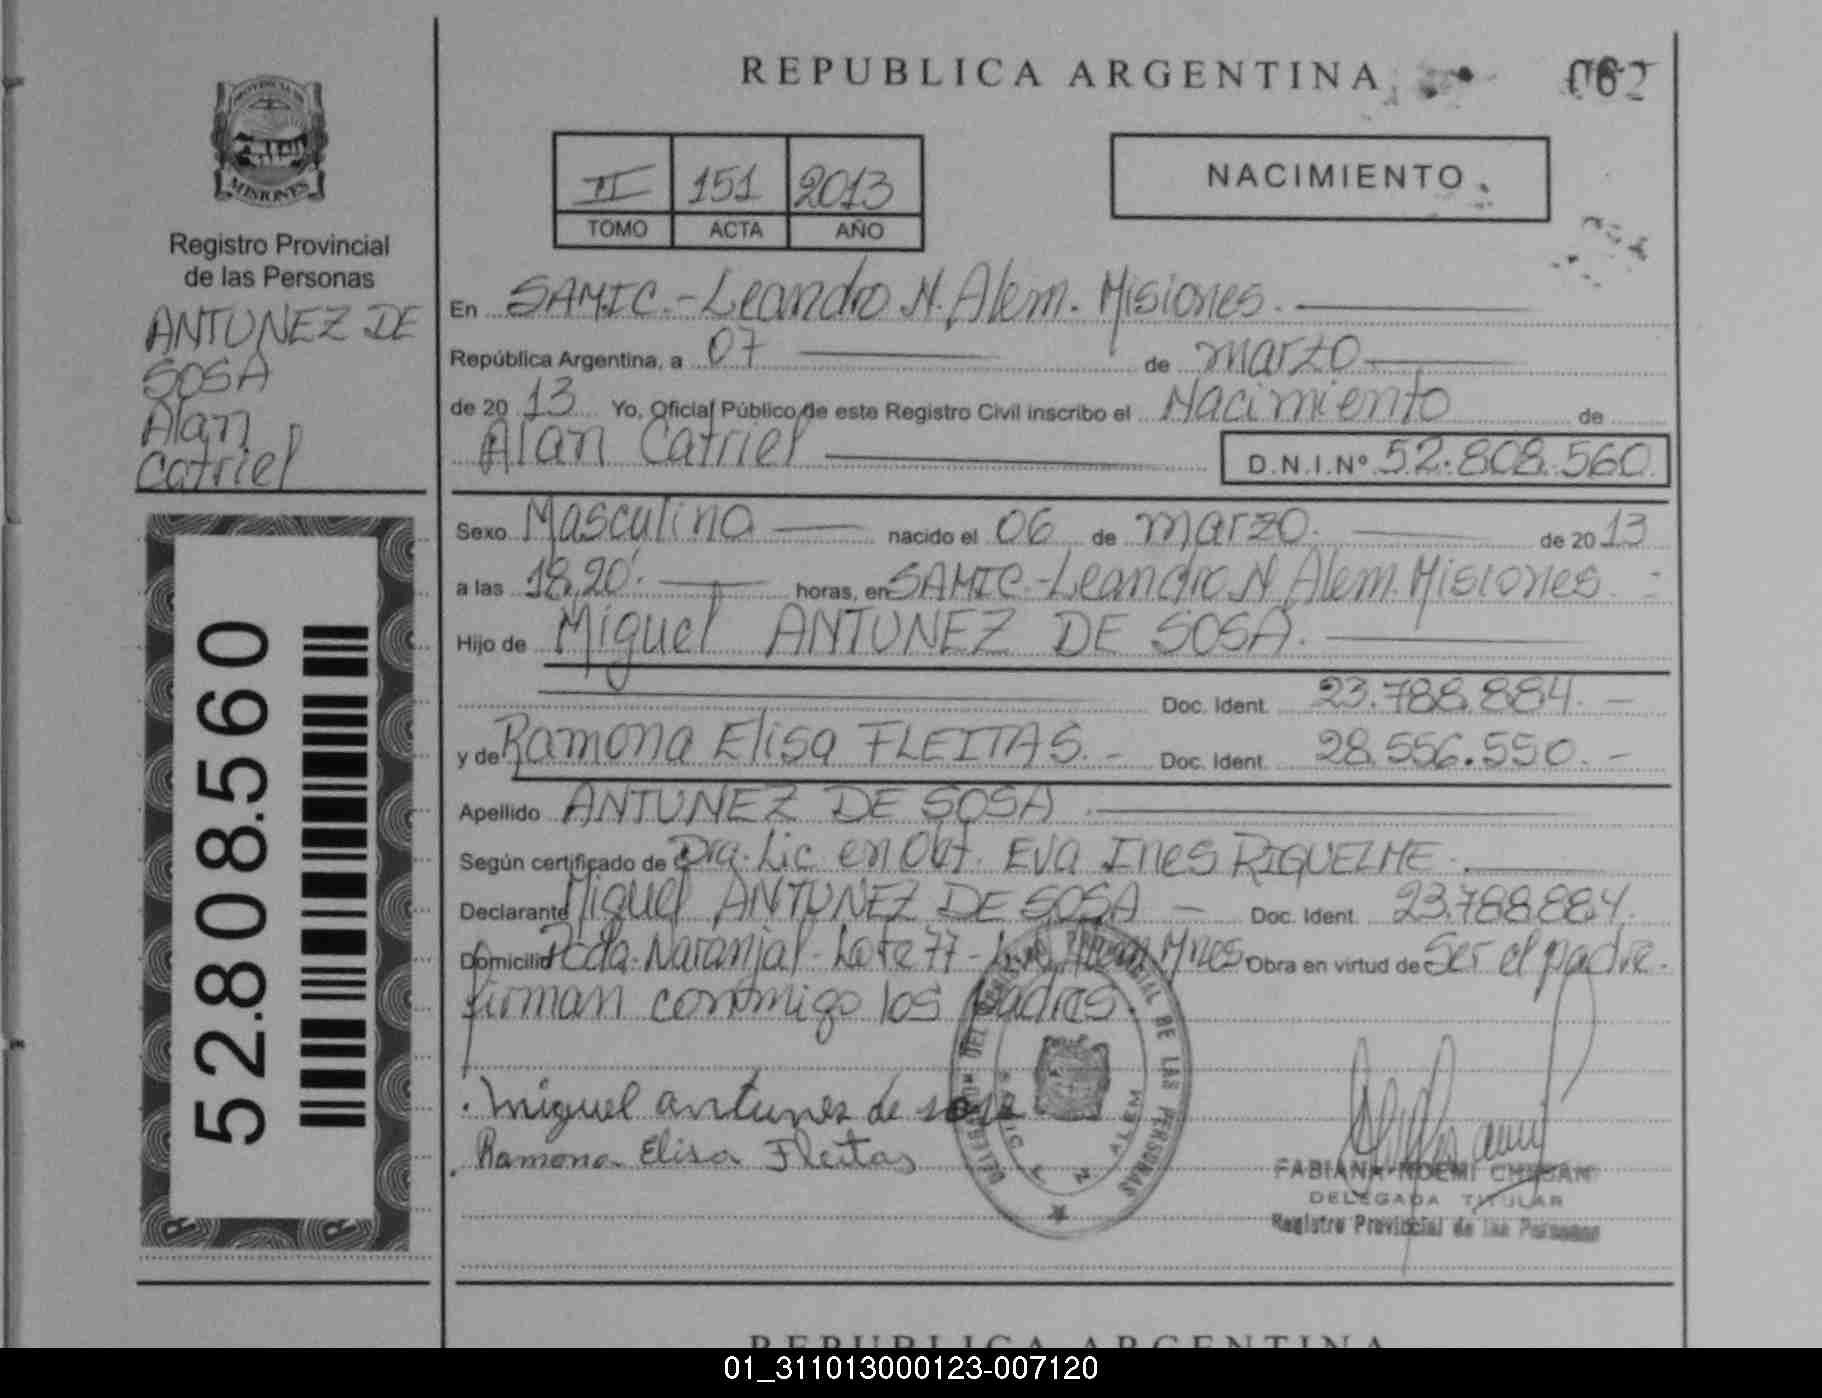 REPUBLICA ARGENTINA
062
PROVINCIA DE
MISIONES
Registro Provincial
de las Personas
ANTUNEZ DE
SOSA
Alan
Catriel
52.808.560
II 151 2013
TOMO ACTA AÑO
NACIMIENTO
En SAMIC.-Leandro N. Alem. Misiones.
República Argentina, a 07 de marzo
de 20 13 Yo, Oficial Público de este Registro Civil inscribo el Nacimiento de
Alan Catriel D.N.I.Nº 52.808.560.
Sexo Masculino nacido el 06 de marzo. de 20 13
a las 18,20'. horas, en SAMIC.-Leandro N. Alem. Misiones.
Hijo de Miguel ANTUNEZ DE SOSA.
Doc. Ident. 23.788.884.-
y de Ramona Elisa FLEITAS.- Doc. Ident. 28.556.550.-
Apellido ANTUNEZ DE SOSA
Según certificado de Dra. Lic. en Obt. Eva Ines RIQUELME.
Declarante Miguel ANTUNEZ DE SOSA - Doc. Ident. 23.788.884.
Domicilio Pcda. Naranjal - Lote 77 - L.N. Alem Mnes. Obra en virtud de Ser el padre.
firman conmigo los padres.
DEL REGISTRO PROVINCIAL DE LAS PERSONAS
SAMIC L. N. ALEM
miguel antunez de sosa
Ramona Elisa Fleitas
FABIANA NOEMI
DELEGADA TITULAR
Registro Provincial de las Personas
REPUBLICA ARGENTINA
01_311013000123-007120